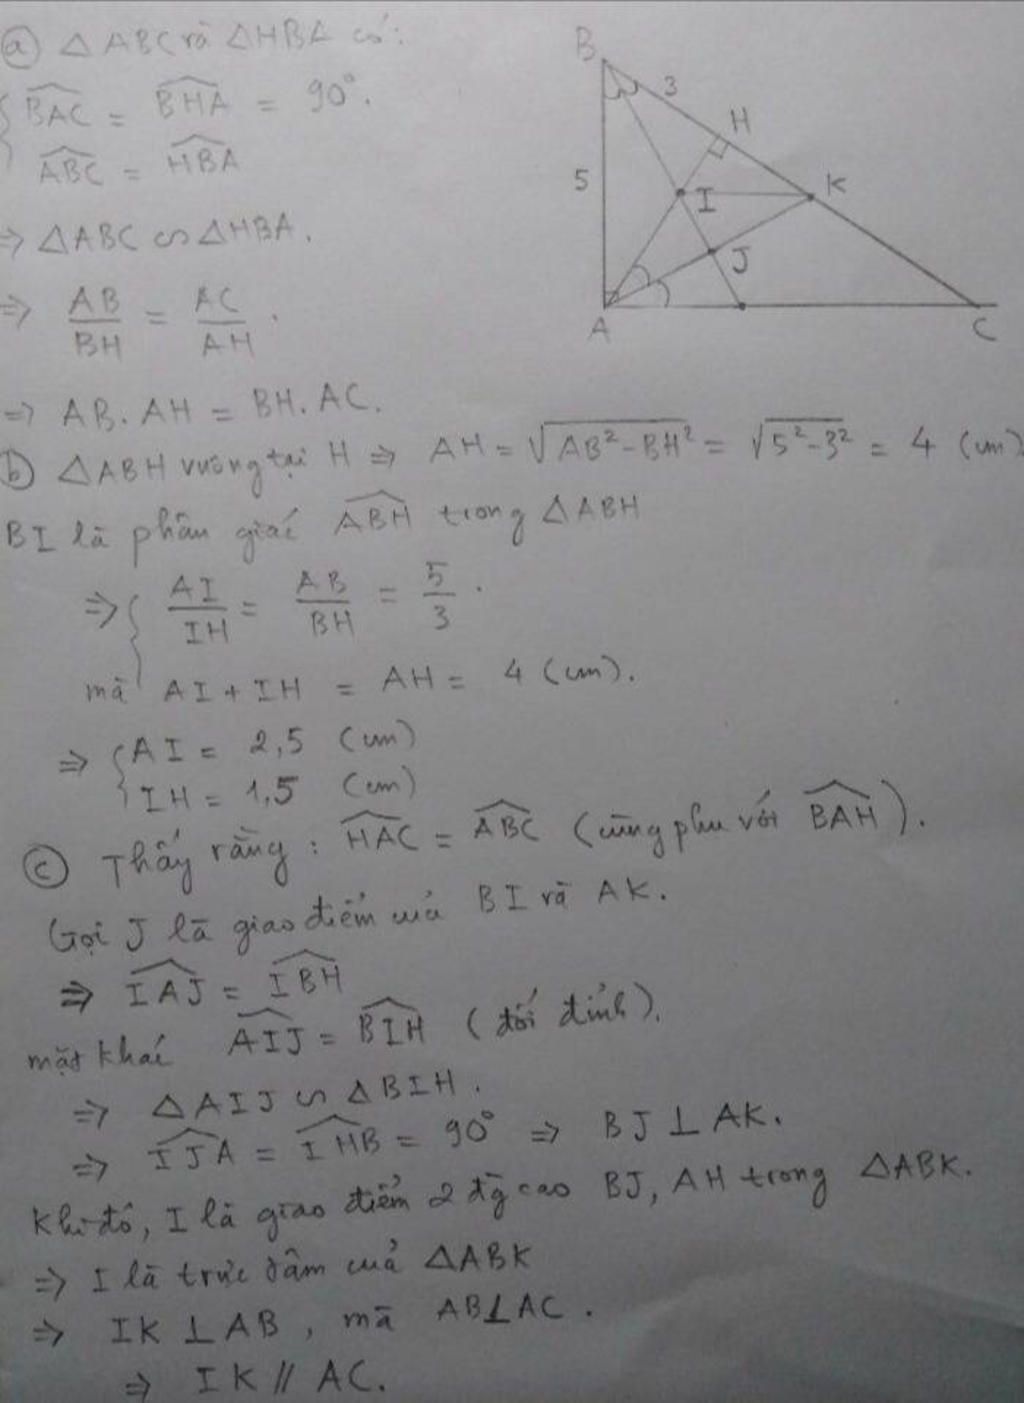 a) △ABC và △HBA có:
{ \widehat{BAC} = \widehat{BHA} = 90°.
\widehat{ABC} = \widehat{HBA}
⇒ △ABC ∽ △HBA.
⇒ AB/BH = AC/AH.
⇒ AB.AH = BH.AC.
b) △ABH vuông tại H ⇒ AH = √(AB²-BH²) = √(5²-3²) = 4 (cm)
BI là phân giác \widehat{ABH} trong △ABH
⇒ { AI/IH = AB/BH = 5/3.
mà AI + IH = AH = 4 (cm).
⇒ { AI = 2,5 (cm)
IH = 1,5 (cm)
c) Thấy rằng: \widehat{HAC} = \widehat{ABC} (cùng phụ với \widehat{BAH}).
Gọi J là giao điểm của BI và AK.
⇒ \widehat{IAJ} = \widehat{IBH}
mặt khác \widehat{AIJ} = \widehat{BIH} (đối đỉnh).
⇒ △AIJ ∽ △BIH.
⇒ \widehat{IJA} = \widehat{IHB} = 90° ⇒ BJ ⊥ AK.
Khi đó, I là giao điểm 2 đg cao BJ, AH trong △ABK.
⇒ I là trực tâm của △ABK
⇒ IK ⊥ AB, mà AB ⊥ AC.
⇒ IK // AC.
B
3
H
5
I
K
J
A
C